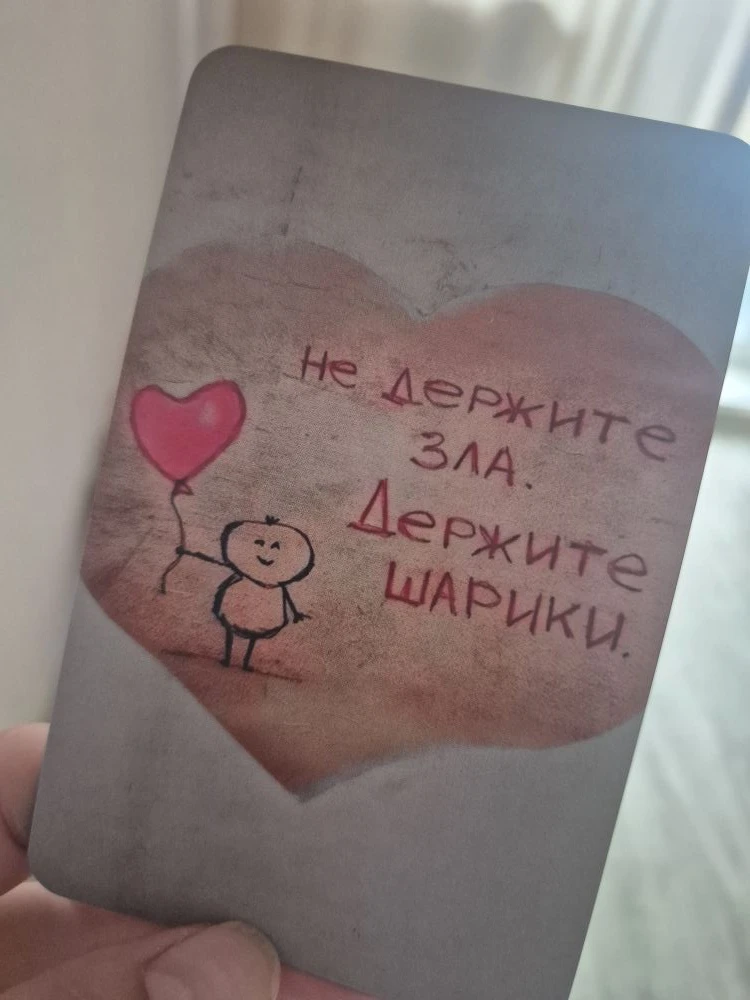 не держите
зла.
Держите
шарики.